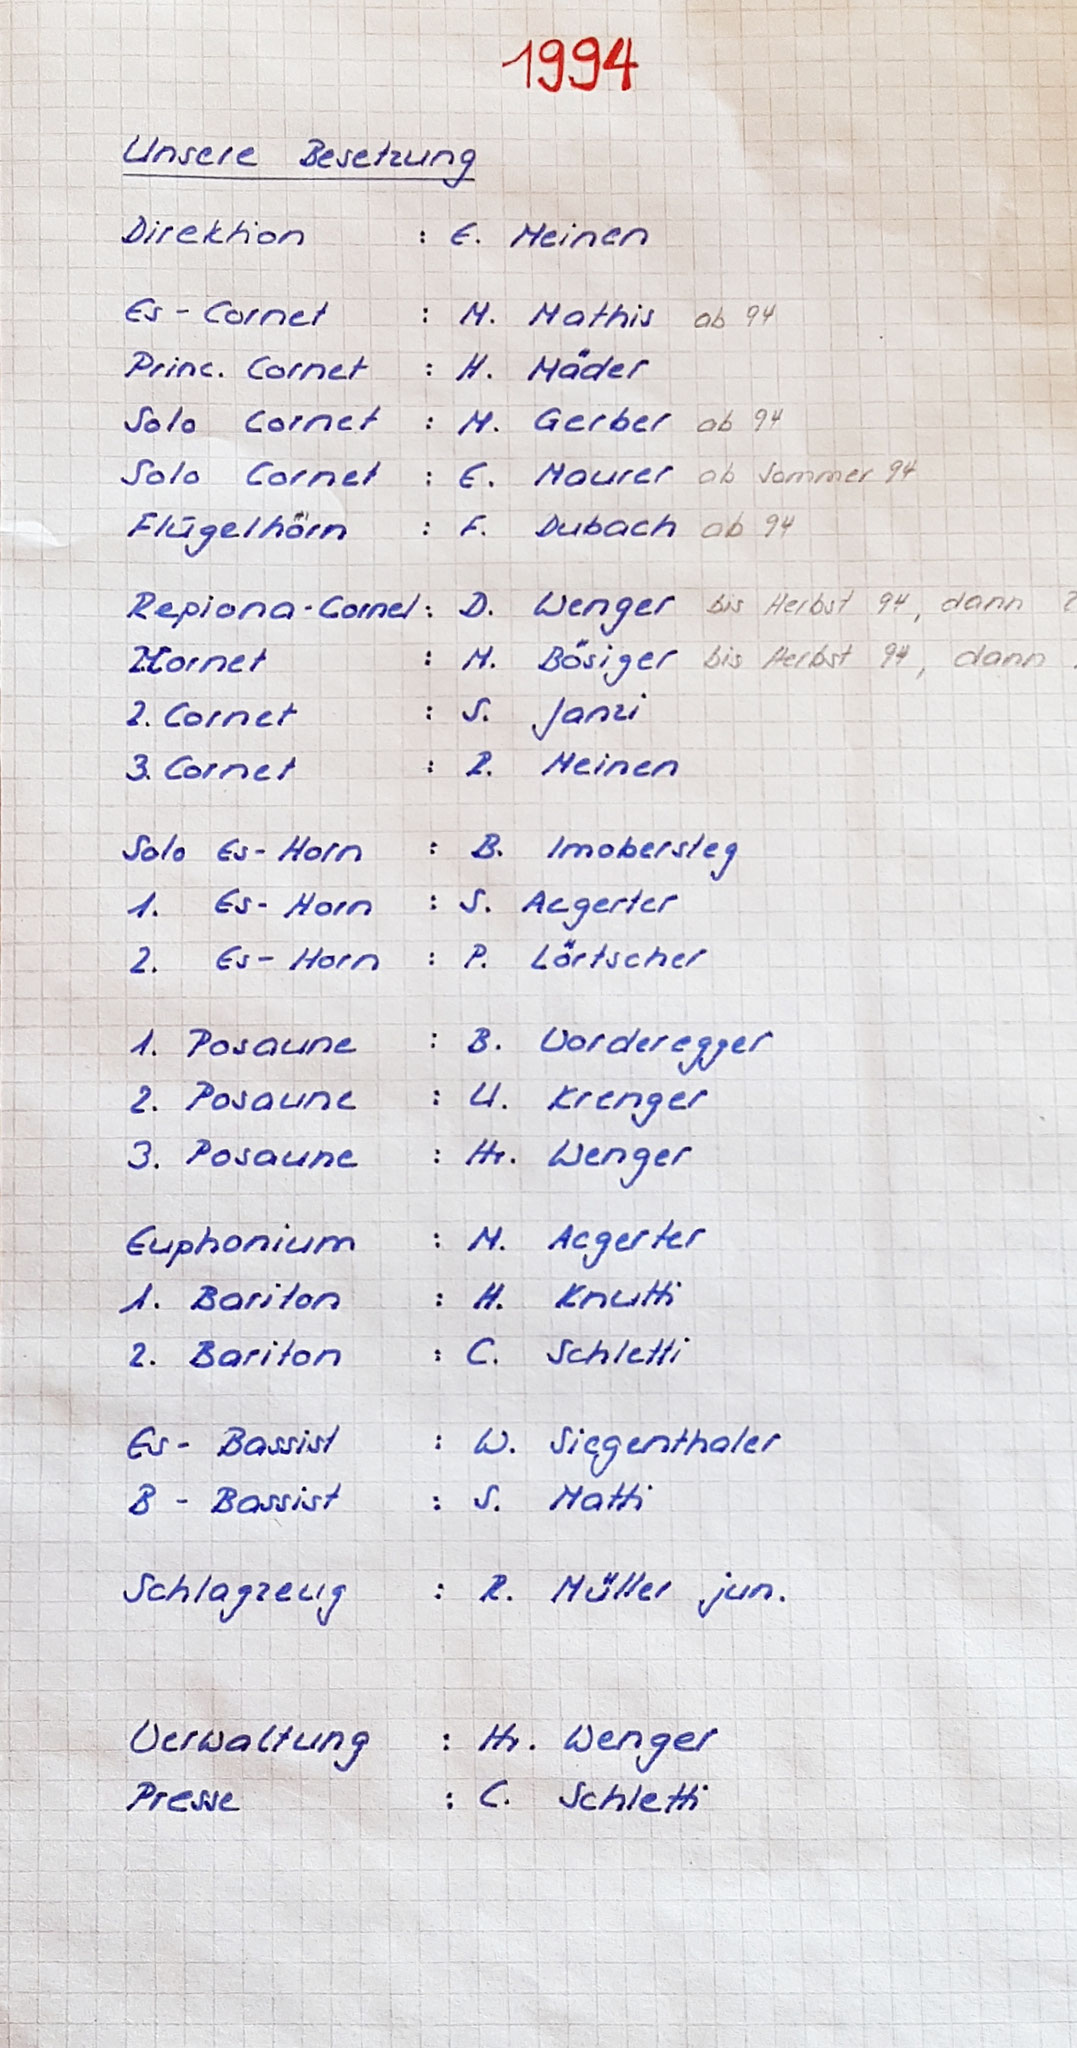 1994
Unsere Besetzung
Direktion : E. Meinen
Es - Cornet : M. Mathis ab 94
Princ. Cornet : H. Mäder
Solo Cornet : M. Gerber ab 94
Solo Cornet : E. Maurer ab Sommer 94
Flügelhörn : F. Dubach ab 94
Repiona - Cornet : D. Wenger bis Herbst 94, dann ?
: M. Bösiger bis Herbst 94, dann
2. Cornet : S. Janzi
3. Cornet : R. Meinen
Solo Es - Horn : B. Imobersteg
1. Es - Horn : S. Aegerter
2. Es - Horn : P. Lörtscher
1. Posaune : B. Vorderegger
2. Posaune : U. Krenger
3. Posaune : Hr. Wenger
Euphonium : M. Aegerter
1. Bariton : H. Knutti
2. Bariton : C. Schletti
Es - Bassist : W. Siegenthaler
B - Bassist : S. Matti
Schlagzeug : R. Müller jun.
Verwaltung : Hr. Wenger
Presse : C. Schletti